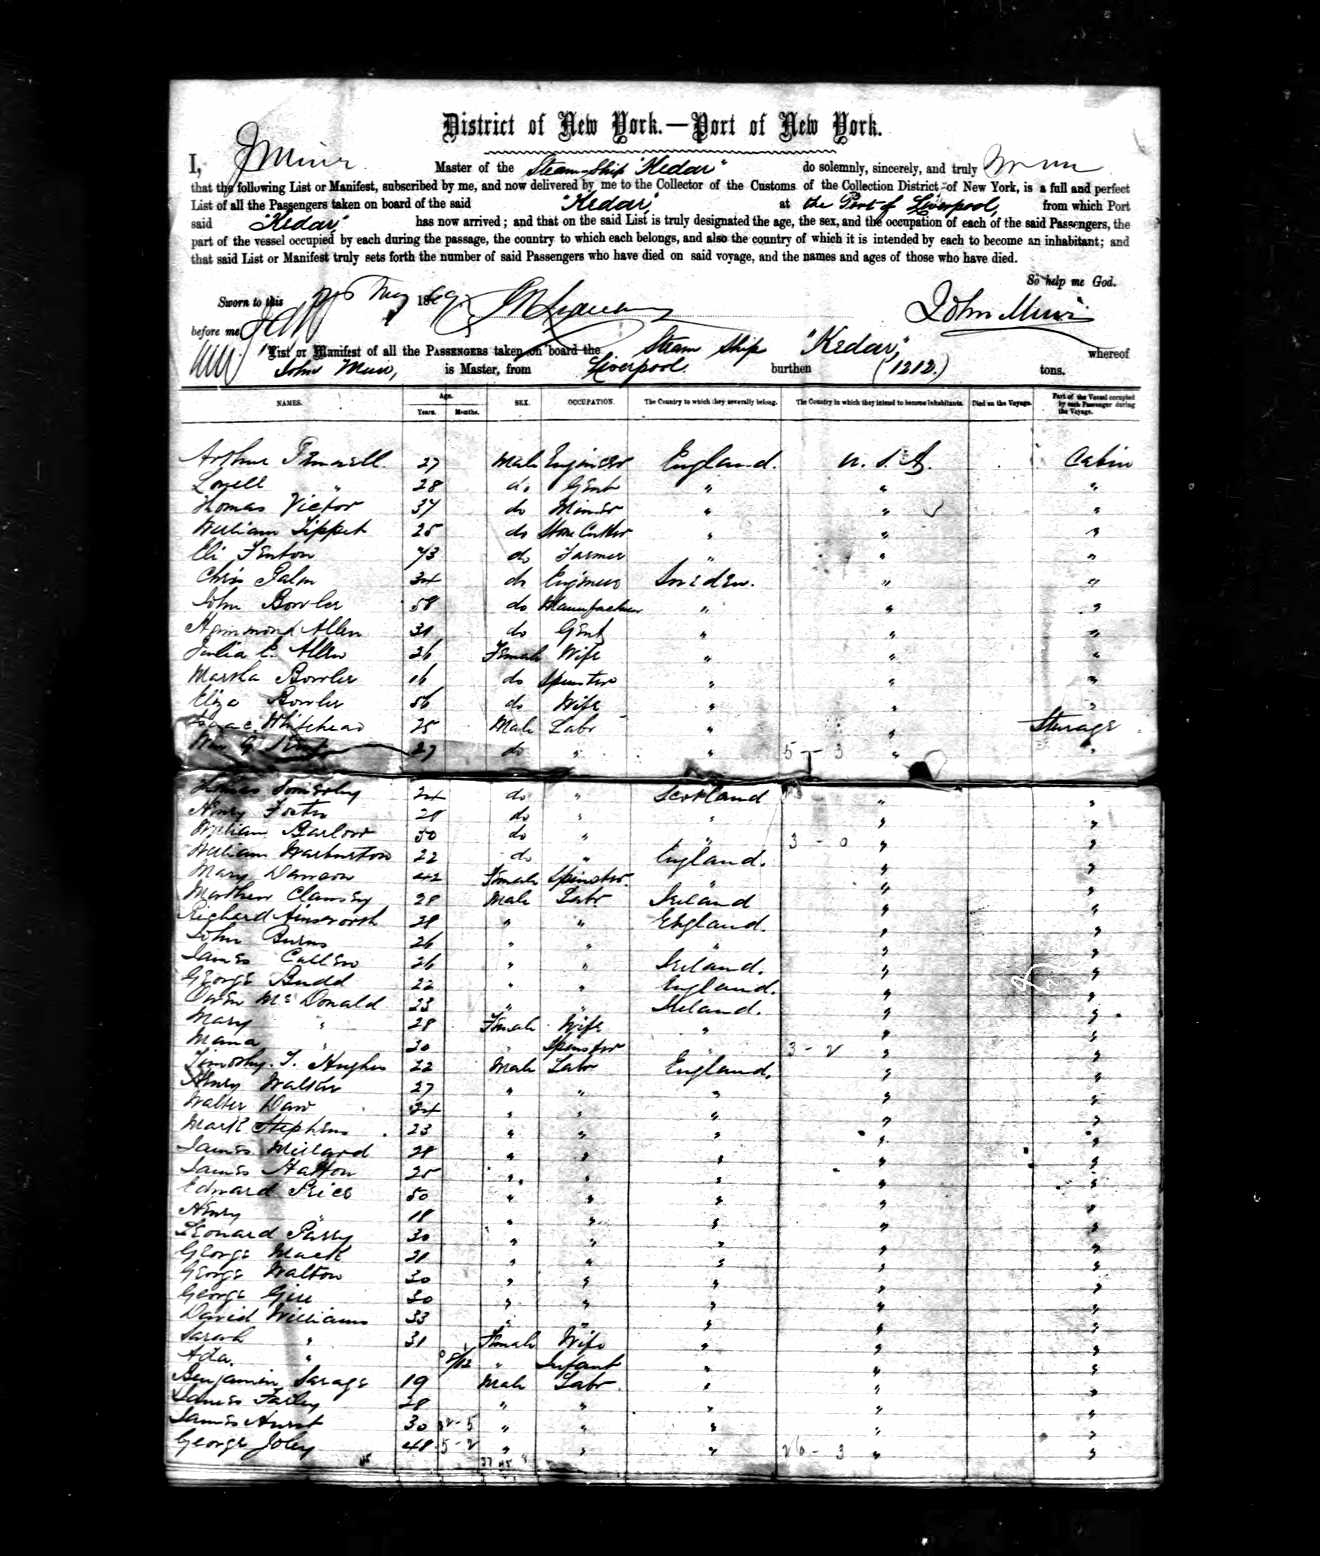 District of New York.—Port of New York.
I, J Muir Master of the Steam Ship "Kedar" do solemnly, sincerely, and truly
that the following List or Manifest, subscribed by me, and now delivered by me to the Collector of the Customs of the Collection District of New York, is a full and perfect
List of all the Passengers taken on board of the said "Kedar" at the Port of Liverpool, from which Port
said "Kedar" has now arrived; and that on the said List is truly designated the age, the sex, and the occupation of each of the said Passengers, the
part of the vessel occupied by each during the passage, the country to which each belongs, and also the country of which it is intended by each to become an inhabitant; and
that said List or Manifest truly sets forth the number of said Passengers who have died on said voyage, and the names and ages of those who have died.
So help me God.
Sworn to this May 1869 John Muir
before me
List or Manifest of all the PASSENGERS taken on board the Steam Ship "Kedar", whereof
John Muir, is Master, from Liverpool burthen (1212.) tons.
NAMES. Age. Years. Months. SEX. OCCUPATION. The Country to which they severally belong. The Country in which they intend to become inhabitants. Died on the Voyage. Part of the Vessel occupied by each Passenger during the Voyage.
Arthur 27 Male Engineer England. U. S. A. Cabin
" 28 do Gent " " "
Thomas Victor 37 do Miner " " "
William Tippet 25 do Stone Cutter " " "
Eli Fenton 43 do Farmer " " "
Chris Palm 34 do Engineer Sweden. " "
John Bowler 58 do Manufacturer " " "
Hammond Allen 31 do Gent " " "
Julia C. Allen 26 Female Wife " " "
Martha Bowler 16 do Spinster " " "
Eliza Bowler 56 do Wife " " "
Isaac Whitehead 25 Male Labr " " Sterage
Wm G. 27 do " " 5 - 3 " "
Thomas 24 do " Scotland " "
Henry Foster 21 do " " " "
William Barlow 50 do " " 3 - 0 " "
William Warburton 22 do " England. " "
Mary Dawson 42 Female Spinster. " " "
Matthew Clansey 28 Male Labr Ireland " "
Richard Ainsworth 28 " " England. " "
John Burns 26 " " " " "
James Cullen 26 " " Ireland. " "
George Budd 22 " " England. " "
Owen McDonald 23 " " Ireland. " "
Mary " 28 Female Wife " " "
Maria " 30 " Spinster " 3 - 2 " "
Timothy. T. Hughes 22 Male Labr England. " "
Henry Walker 27 " " " " "
Walter Daw 34 " " " " "
Mark Stephens 23 " " " " "
James Millard 28 " " " " "
James Hatton 25 " " " " "
Edward Price 50 " " " " "
Henry " 18 " " " " "
Leonard Parry 30 " " " " "
George Mack 21 " " " " "
George Walton 30 " " " " "
George Gill 30 " " " " "
David Williams 33 " " " " "
Sarah " 31 Female Wife " " "
Ada. " 5/12 " Infant " " "
Benjamin Savage 19 Male Labr. " " "
James Farley 28 " " " " "
James Hurst 30 " " " " "
George Joley 48 5-2 " " " 26 - 3 " "